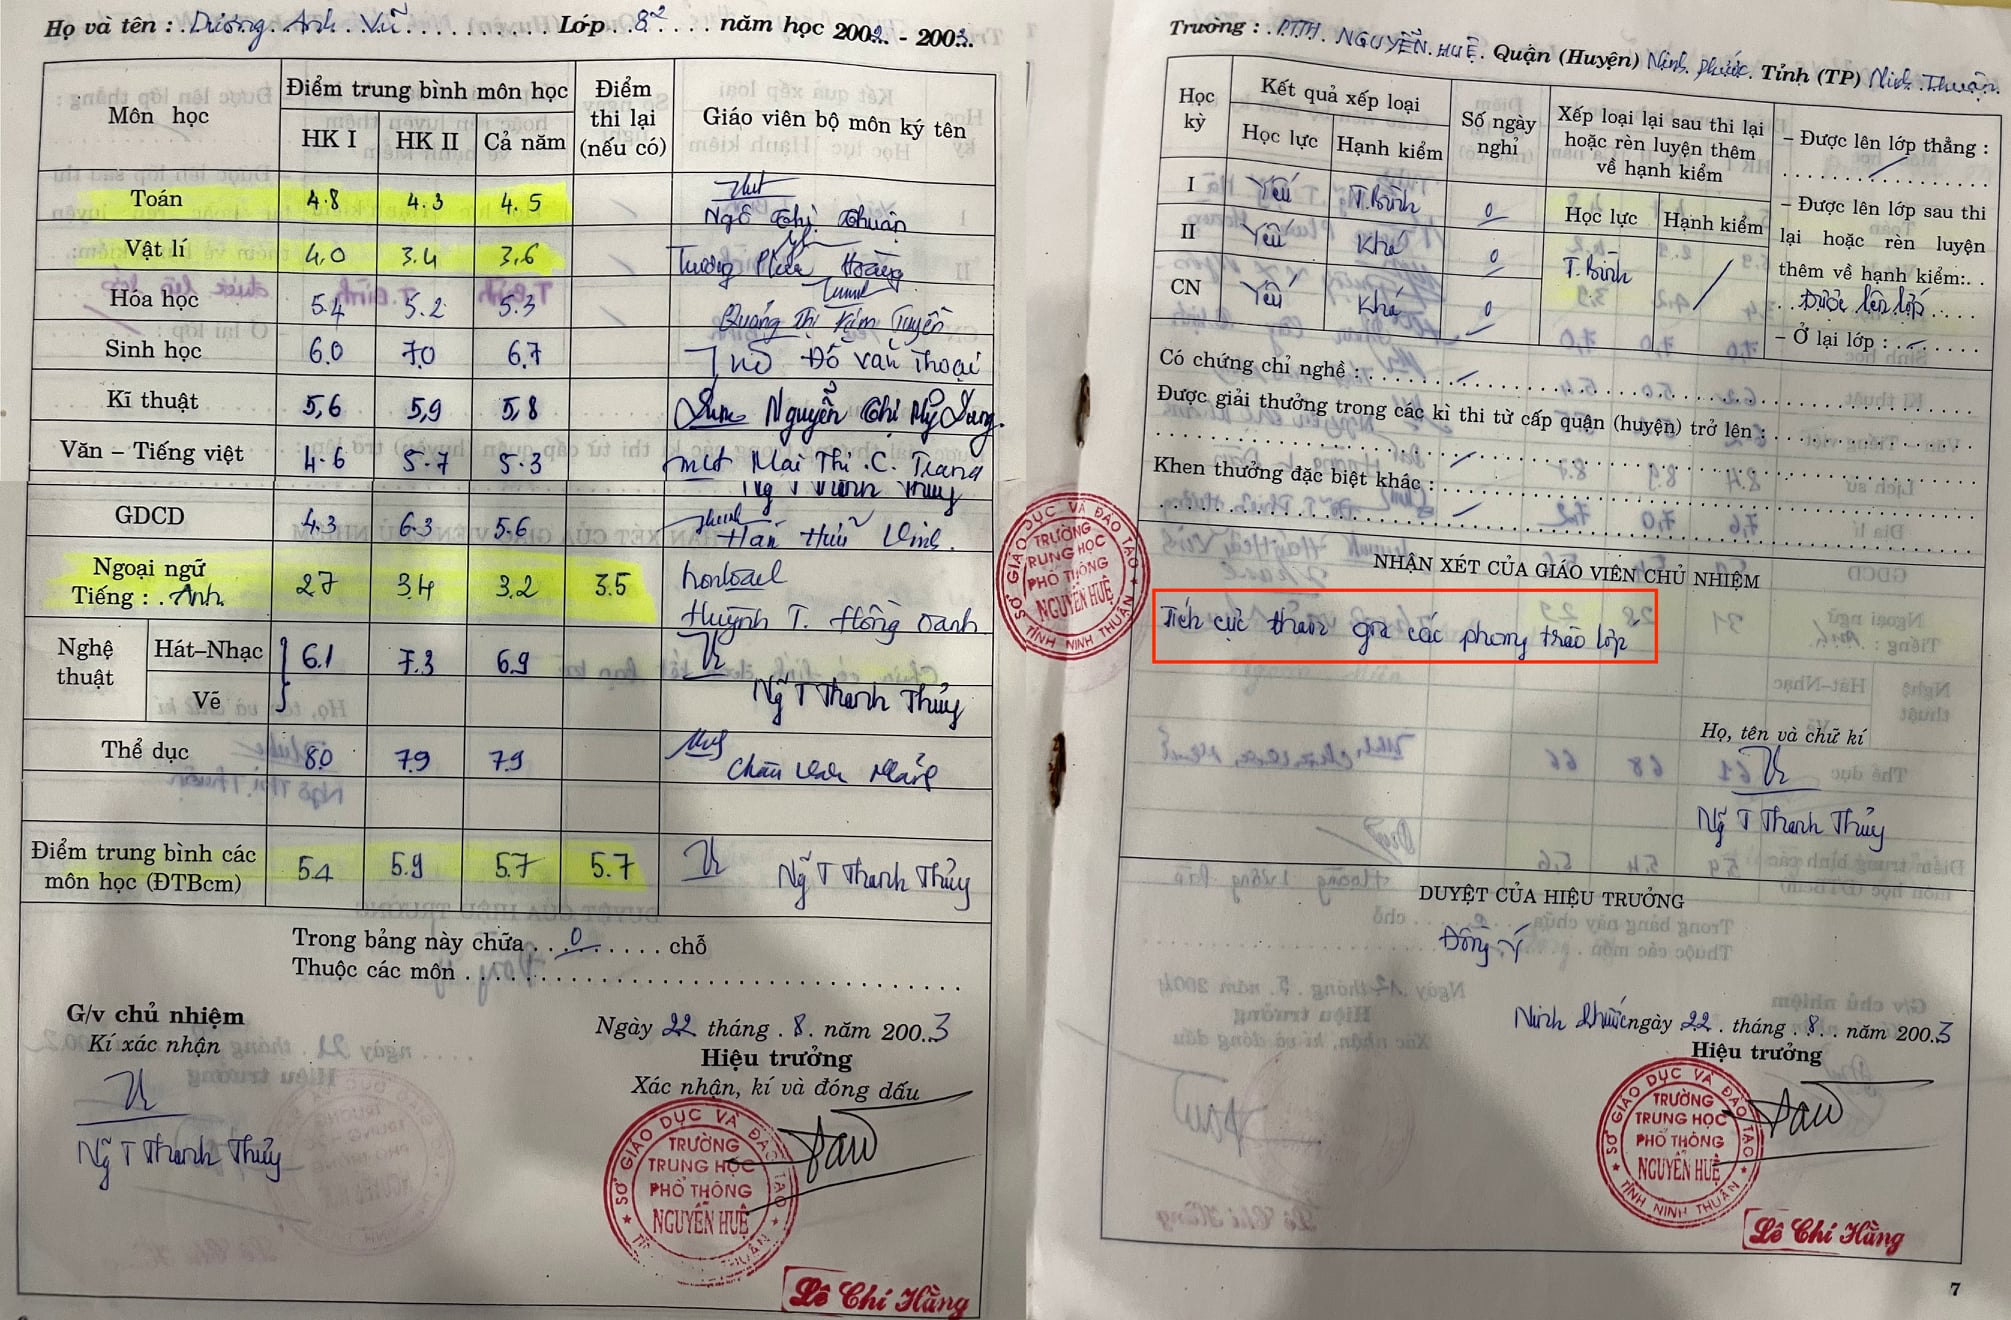 Họ và tên : Dương Anh Vũ Lớp 8² năm học 2002 - 2003
Môn học
Điểm trung bình môn học
HK I HK II Cả năm
Điểm thi lại (nếu có)
Giáo viên bộ môn ký tên
Toán 4.8 4.3 4.5 Ngô Thị Thuận
Vật lí 4,0 3.4 3,6 Trương Phiếu Hoàng
Hóa học 5.4 5.2 5.3 Quảng Thị Kim Tuyến
Sinh học 6.0 7.0 6.7 Đỗ Văn Thoại
Kĩ thuật 5,6 5,9 5,8 Nguyễn Thị Mỹ Dung
Văn – Tiếng việt 4.6 5.7 5.3 Mai Thi .C. Trang
Ng T Thanh Thủy
GDCD 4.3 6.3 5.6 Hán Thủy Vinh.
Ngoại ngữ
Tiếng : Anh 2.7 3.4 3.2 3.5 Huỳnh T. Hồng Oanh
Nghệ thuật
Hát–Nhạc 6.1 7.3 6.9
Vẽ Ng T Thanh Thủy
Thể dục 8.0 7.9 7.9 Châu Văn
Điểm trung bình các môn học (ĐTBcm) 5.4 5.9 5.7 5.7 Ng T Thanh Thủy
Trong bảng này chữa 0 chỗ
Thuộc các môn
G/v chủ nhiệm
Kí xác nhận
Ng T Thanh Thủy
Ngày 22 tháng 8 năm 2003
Hiệu trưởng
Xác nhận, kí và đóng dấu
SỞ GIÁO DỤC VÀ ĐÀO TẠO
TRƯỜNG
TRUNG HỌC
PHỔ THÔNG
NGUYỄN HUỆ
TỈNH NINH THUẬN
Lê Chí Hằng
Trường : PTTH NGUYỄN HUỆ Quận (Huyện) Ninh Phước Tỉnh (TP) Ninh Thuận
Học kỳ
Kết quả xếp loại
Học lực Hạnh kiểm
Số ngày nghỉ
Xếp loại lại sau thi lại hoặc rèn luyện thêm về hạnh kiểm
Học lực Hạnh kiểm
I Yếu T.Bình 0
II Yếu Khá 0
CN Yếu Khá 0
T.Bình
– Được lên lớp thẳng :
– Được lên lớp sau thi lại hoặc rèn luyện thêm về hạnh kiểm:
Được lên lớp
– Ở lại lớp :
Có chứng chỉ nghề :
Được giải thưởng trong các kì thi từ cấp quận (huyện) trở lên :
Khen thưởng đặc biệt khác :
SỞ GIÁO DỤC VÀ ĐÀO TẠO
TRƯỜNG
TRUNG HỌC
PHỔ THÔNG
NGUYỄN HUỆ
TỈNH NINH THUẬN
NHẬN XÉT CỦA GIÁO VIÊN CHỦ NHIỆM
Tích cực tham gia các phong trào lớp
Họ, tên và chữ kí
Ng T Thanh Thủy
DUYỆT CỦA HIỆU TRƯỞNG
Đồng ý
Ninh Phước ngày 22 tháng 8 năm 2003
Hiệu trưởng
SỞ GIÁO DỤC VÀ ĐÀO TẠO
TRƯỜNG
TRUNG HỌC
PHỔ THÔNG
NGUYỄN HUỆ
TỈNH NINH THUẬN
Lê Chí Hằng
7